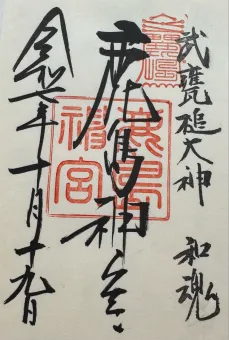 武甕槌大神 和魂
鹿島神宮
鹿島
神宮
令和七年十月十九日